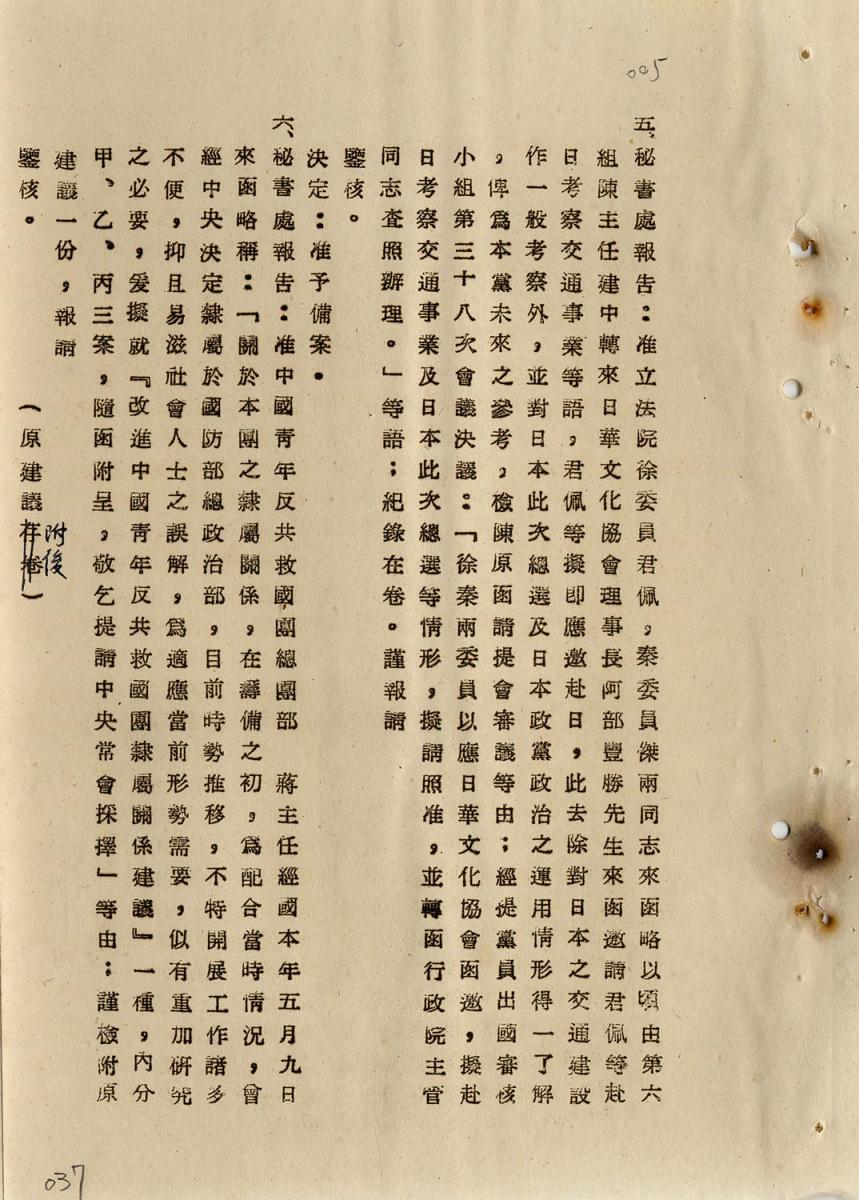 005
五、秘書處報告：准立法院徐委員君佩，秦委員傑兩同志來函略以頃由第六
組陳主任建中轉來日華文化協會理事長阿部豐勝先生來函邀請君佩等赴
日考察交通事業等語。君佩等擬即應邀赴日，此去除對日本之交通建設
作一般考察外，並對日本此次總選及日本政黨政治之運用情形得一了解
，俾爲本黨未來之參考。檢陳原函請提會審議等由；經提黨員出國審核
小組第三十八次會議決議：「徐秦兩委員以應日華文化協會函邀，擬赴
日考察交通事業及日本此次總選等情形，擬請照准，並轉函行政院主管
同志查照辦理。」等語；紀錄在卷。謹報請
鑒核。
決定：准予備案。
六、秘書處報告：准中國青年反共救國團總團部 蔣主任經國本年五月九日
來函略稱：「關於本團之隸屬關係，在籌備之初，爲配合當時情況，曾
經中央決定隸屬於國防部總政治部，目前時勢推移，不特開展工作諸多
不便，抑且易滋社會人士之誤解，爲適應當前形勢需要，似有重加研究
之必要，爰擬就『改進中國青年反共救國團隸屬關係建議』一種，內分
甲、乙、丙三案，隨函附呈，敬乞提請中央常會採擇」等由；謹檢附原
建議一份，報請
鑒核。 （原建議存卷）
附後
037